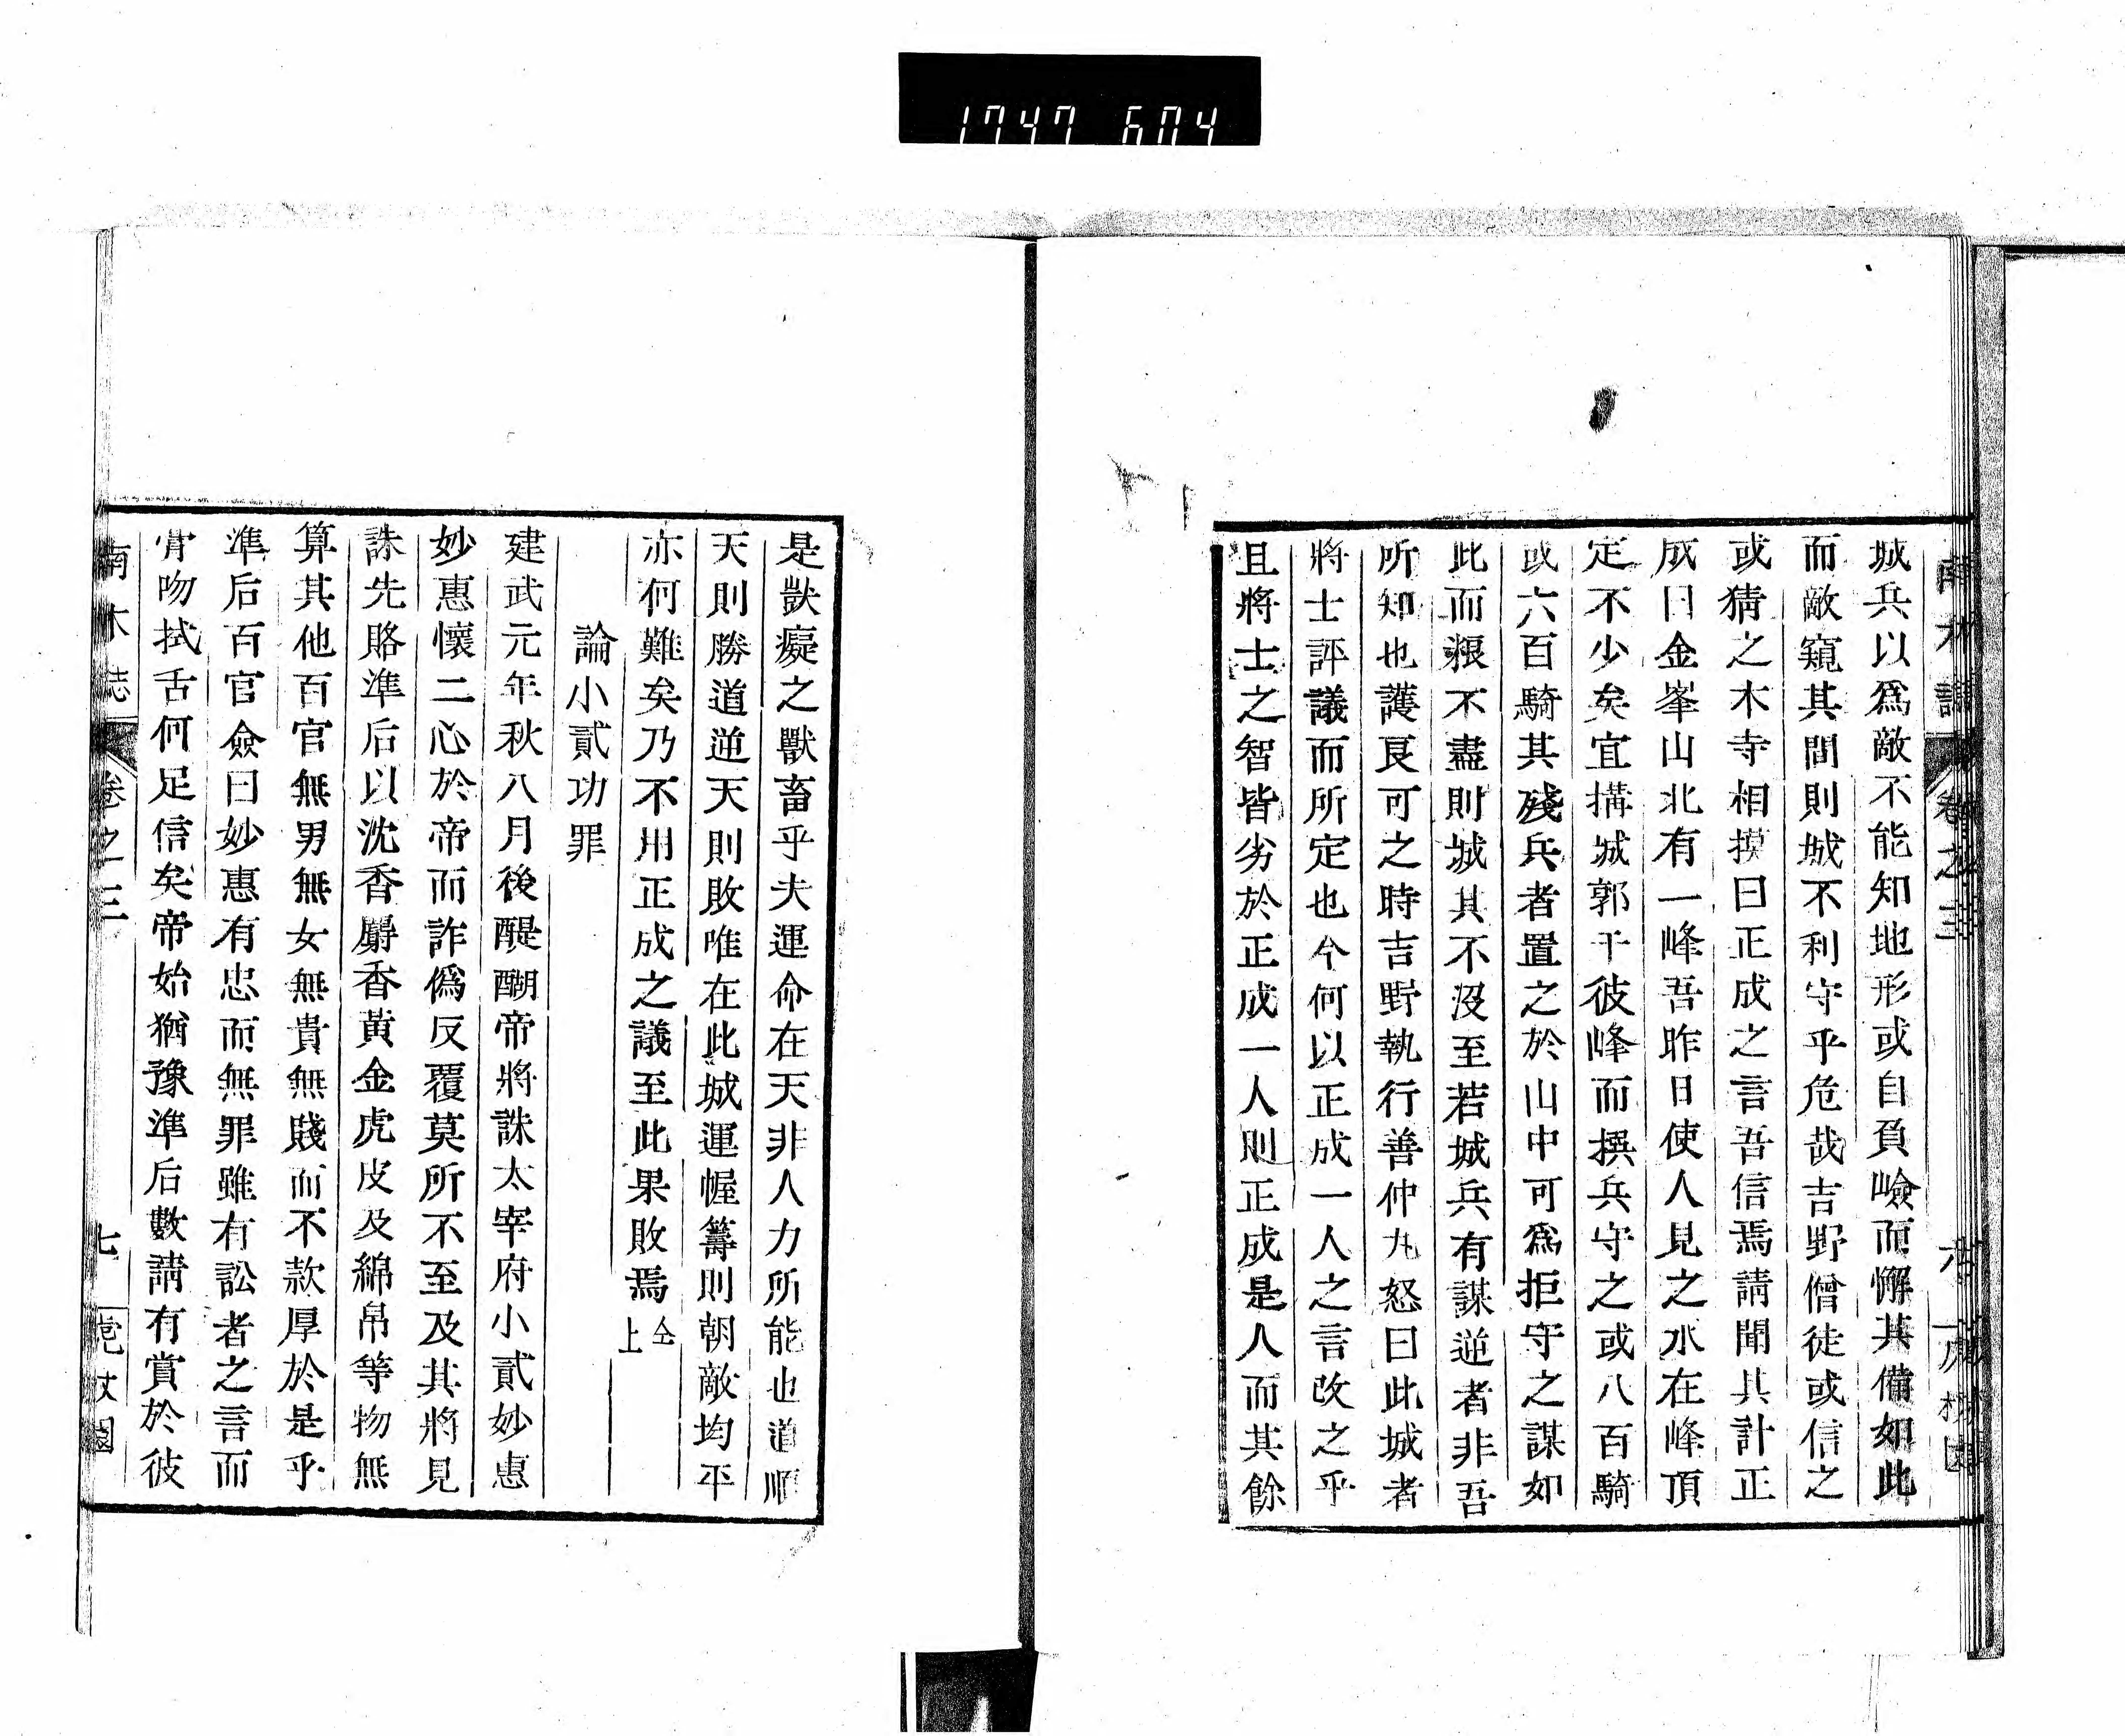 1747 604
城兵以爲敵不能知地形或自負嶮而懈其備如此
而敵窺其間則城不利守乎危哉吉野僧徒或信之
或猜之木寺相摸曰正成之言吾信焉請聞其計正
成曰金峯山北有一峰吾昨日使人見之水在峰頂
定不少矣宜搆城郭于彼峰而撰兵守之或八百騎
或六百騎其殘兵者置之於山中可爲拒守之謀如
此而粮不盡則城其不沒至若城兵有謀逆者非吾
所知也護良可之時吉野執行善仲丸怒曰此城者
將士評議而所定也今何以正成一人之言改之乎
且將士之智皆劣於正成一人則正成是人而其餘
是獣癡之獸畜乎夫運命在天非人力所能也道順
天則勝道逆天則敗唯在此城運幄籌則朝敵均平
亦何難矣乃不用正成之議至此果敗焉仝上
論小貳功罪
建武元年秋八月後醍醐帝將誅太宰府小貳妙惠
妙惠懷二心於帝而詐僞反覆莫所不至及其將見
誅先賂準后以沈香麝香黃金虎皮及綿帛等物無
算其他百官無男無女無貴無賤而不款厚於是乎
準后百官僉曰妙惠有忠而無罪雖有訟者之言而
脗吻拭舌何足信矣帝始猶豫準后數請有賞於彼
南木誌 卷之三 七